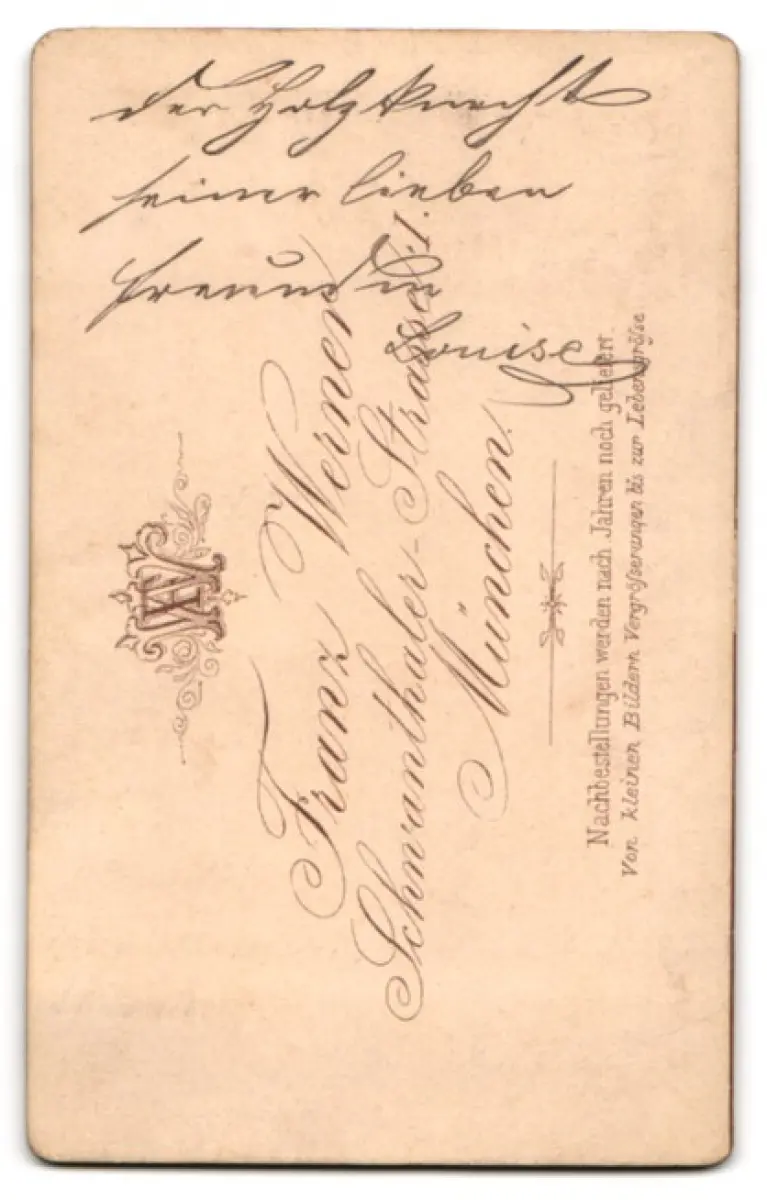 Der Holzknecht
seiner lieben
Freundin
Louise
FW
Franz Werner
Schwanthaler-Strasse 1.
München.
Nachbestellungen werden nach Jahren noch geliefert.
Von kleinen Bildern Vergrößerungen bis zur Lebensgröße